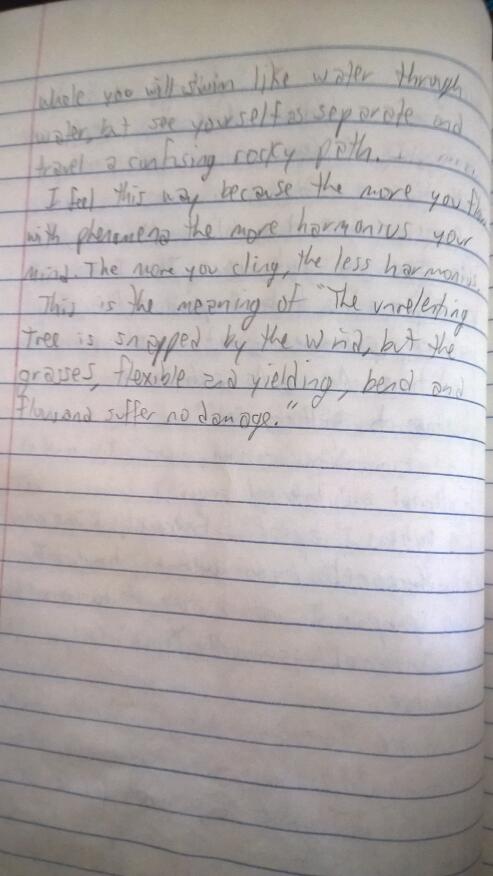 whole you will swim like water through
water, but see yourself as separate and
travel a confusing rocky path.
I feel this way because the more you flow
with phenomena the more harmonius your
mind. The more you cling, the less harmonius.
This is the meaning of "The unrelenting
tree is snapped by the wind, but the
grasses, flexible and yielding, bend and
flow, and suffer no damage."